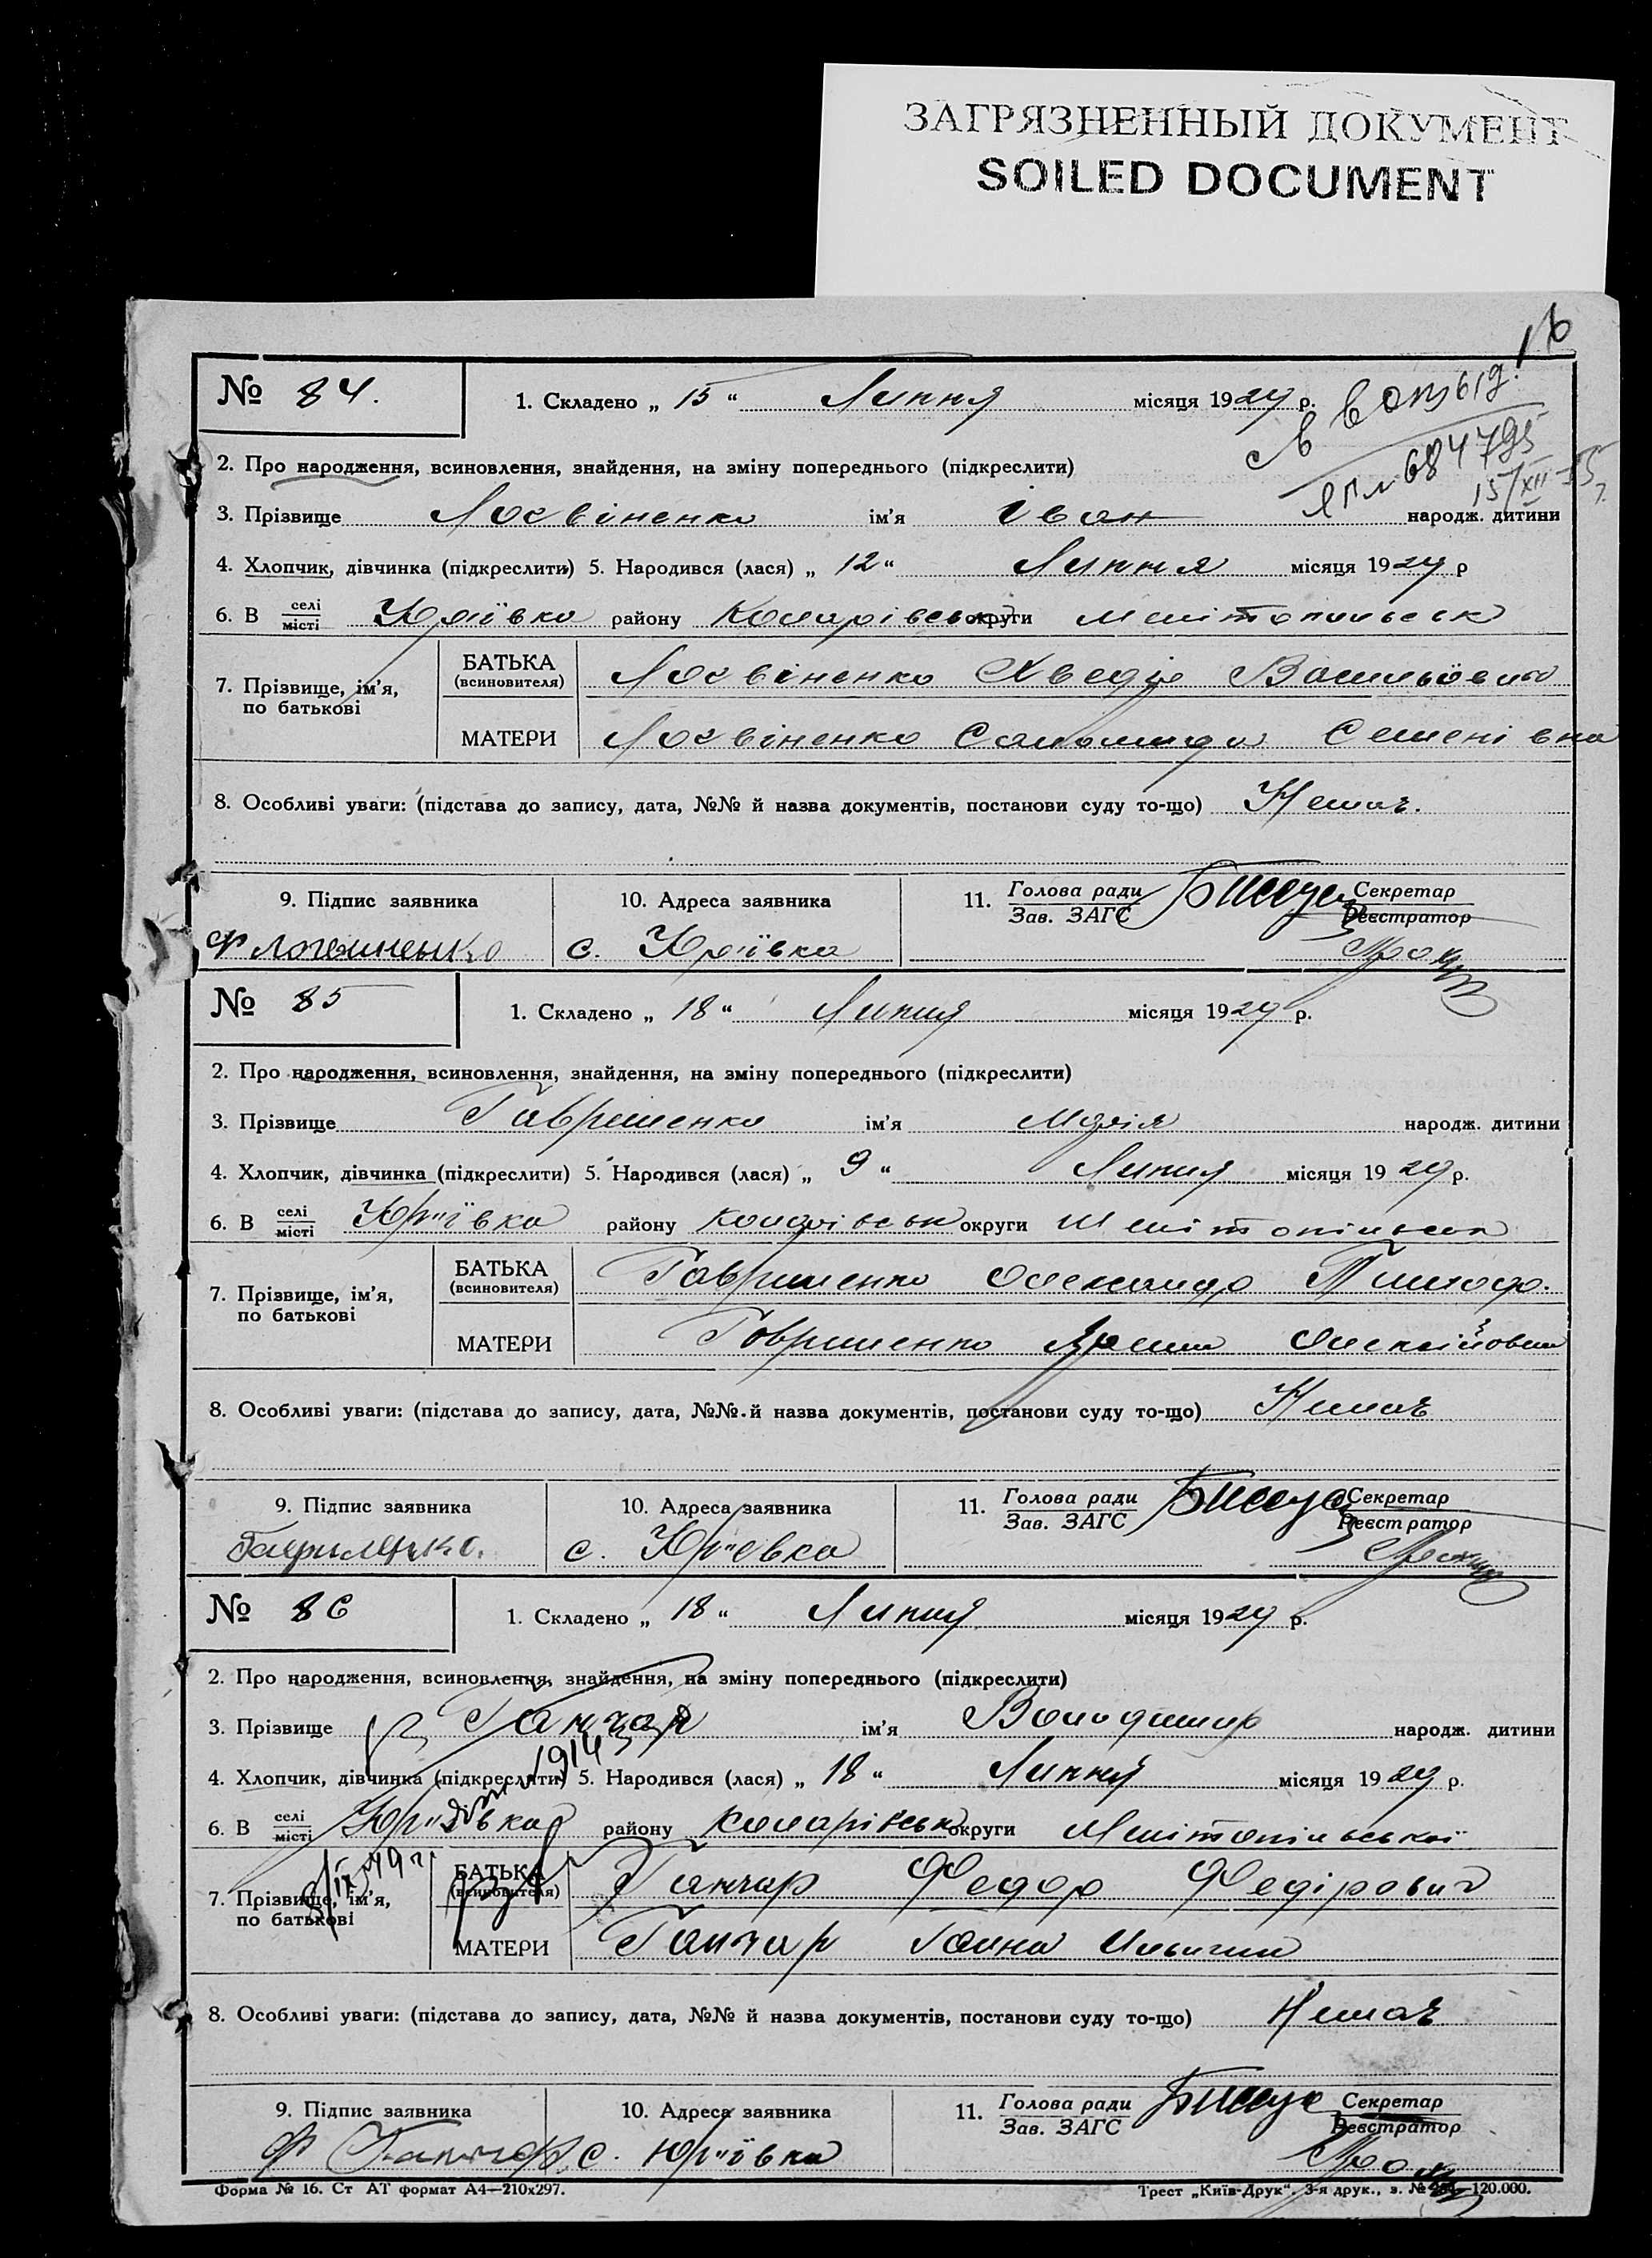 ЗАГРЯЗНЕННЫЙ ДОКУМЕНТ
SOILED DOCUMENT
16
№ 84.
1. Складено „ 15 “ Липня місяця 1929 р.
684795
15/XII-55
2. Про народження, всиновлення, знайдення, на зміну попереднього (підкреслити)
3. Прізвище Логвіненко ім'я Іван народж. дитини
4. Хлопчик, дівчинка (підкреслити) 5. Народився (лася) „ 12 “ Липня місяця 1929 р
6. В селі/місті Юріївка району Коларівськ округи Мелітопольськ
7. Прізвище, ім'я, по батькові
БАТЬКА (всиновителя) Логвіненко Хведір Васильович
МАТЕРИ Логвіненко Саломида Семенівна
8. Особливі уваги: (підстава до запису, дата, №№ й назва документів, постанови суду то-що) Немає.
9. Підпис заявника 10. Адреса заявника 11. Голова ради/Зав. ЗАГС Секретар/Реєстратор
с. Юріївка
№ 85
1. Складено „ 18 “ Липня місяця 1929 р.
2. Про народження, всиновлення, знайдення, на зміну попереднього (підкреслити)
3. Прізвище Гавриленко ім'я Марія народж. дитини
4. Хлопчик, дівчинка (підкреслити) 5. Народився (лася) „ 9 “ Липня місяця 1929 р.
6. В селі/місті Юріївка району Коларівськ округи Мелітопільськ
7. Прізвище, ім'я, по батькові
БАТЬКА (всиновителя) Гавриленко Олександр Тимоф.
МАТЕРИ Гавриленко Олексіїовна
8. Особливі уваги: (підстава до запису, дата, №№ й назва документів, постанови суду то-що) Немає
9. Підпис заявника 10. Адреса заявника 11. Голова ради/Зав. ЗАГС Секретар/Реєстратор
с. Юріевка
№ 86
1. Складено „ 18 “ Липня місяця 1929 р.
2. Про народження, всиновлення, знайдення, на зміну попереднього (підкреслити)
3. Прізвище Ганчар ім'я Володимир народж. дитини
4. Хлопчик, дівчинка (підкреслити) 5. Народився (лася) „ 18 “ Липня місяця 1929 р.
6. В селі/місті Юріївка району Коларівськ округи Мелітопільської
7. Прізвище, ім'я, по батькові
БАТЬКА (всиновителя) Ганчар Федор Федірович
МАТЕРИ Ганчар Ганна
8. Особливі уваги: (підстава до запису, дата, №№ й назва документів, постанови суду то-що) Немає
9. Підпис заявника 10. Адреса заявника 11. Голова ради/Зав. ЗАГС Секретар/Реєстратор
Ф Ганчар с. Юріївка
Форма № 16. Ст АТ формат А4—210х297. Трест „Київ-Друк“. 3-я друк., з. № —120.000.